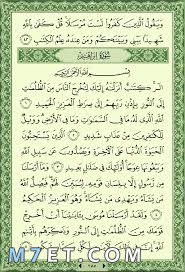 وَيَقُولُ الَّذِينَ كَفَرُوا لَسْتَ مُرْسَلًا قُلْ كَفَىٰ بِاللَّهِ
شَهِيدًا بَيْنِي وَبَيْنَكُمْ وَمَنْ عِندَهُ عِلْمُ الْكِتَٰبِ ٤٣
سُورَةُ إِبْرَاهِيمَ
بِسْمِ اللَّهِ الرَّحْمَٰنِ الرَّحِيمِ
الٓر كِتَٰبٌ أَنزَلْنَٰهُ إِلَيْكَ لِتُخْرِجَ النَّاسَ مِنَ الظُّلُمَٰتِ
إِلَى النُّورِ بِإِذْنِ رَبِّهِمْ إِلَىٰ صِرَٰطِ الْعَزِيزِ الْحَمِيدِ ١
اللَّهِ الَّذِي لَهُ مَا فِي السَّمَٰوَٰتِ وَمَا فِي الْأَرْضِ وَوَيْلٌ
لِّلْكَٰفِرِينَ مِنْ عَذَابٍ شَدِيدٍ ٢ الَّذِينَ يَسْتَحِبُّونَ
الْحَيَوٰةَ الدُّنْيَا عَلَى الْآخِرَةِ وَيَصُدُّونَ عَن سَبِيلِ اللَّهِ
وَيَبْغُونَهَا عِوَجًا أُولَٰئِكَ فِي ضَلَٰلٍ بَعِيدٍ ٣ وَمَا أَرْسَلْنَا
مِن رَّسُولٍ إِلَّا بِلِسَانِ قَوْمِهِ لِيُبَيِّنَ لَهُمْ فَيُضِلُّ اللَّهُ
مَن يَشَاءُ وَيَهْدِي مَن يَشَاءُ وَهُوَ الْعَزِيزُ الْحَكِيمُ ٤
وَلَقَدْ أَرْسَلْنَا مُوسَىٰ بِـَٔايَٰتِنَا أَنْ أَخْرِجْ قَوْمَكَ مِنَ
الظُّلُمَٰتِ إِلَى النُّورِ وَذَكِّرْهُم بِأَيَّىٰمِ اللَّهِ إِنَّ فِي
M7ET.COM
٢٥٥